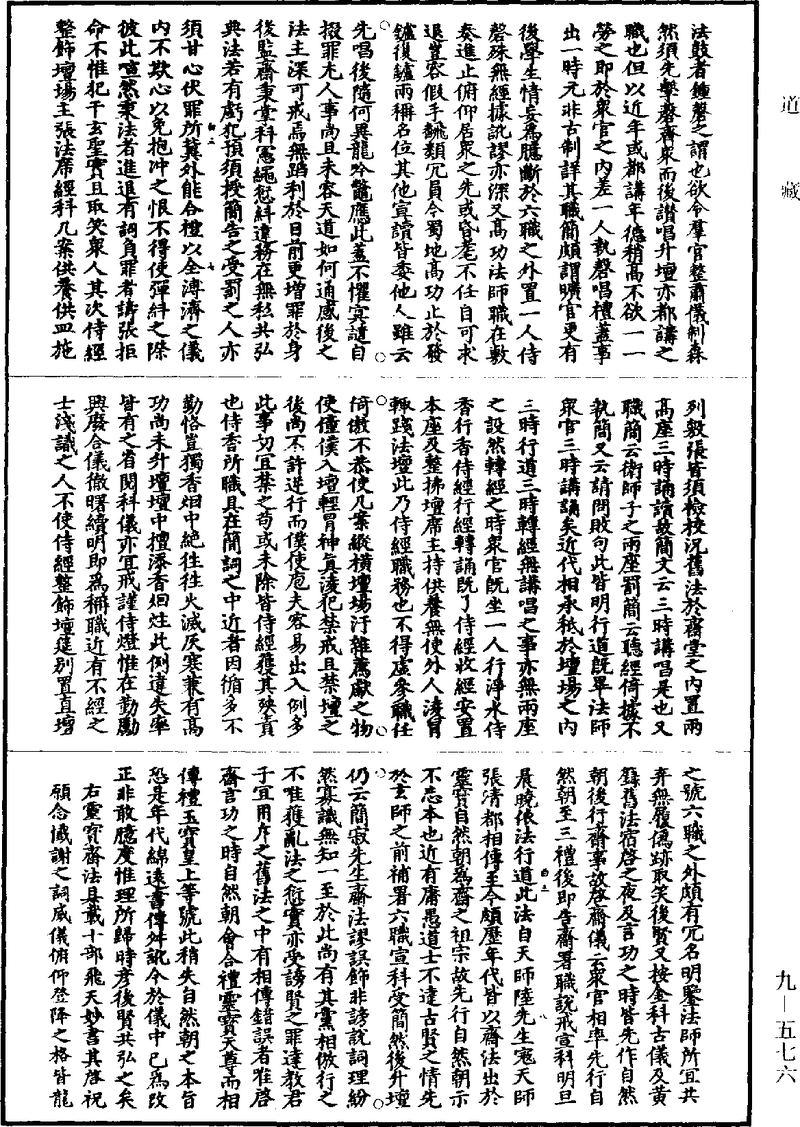 道藏
法鼓者鍾磬之謂也欲令羣官整肅儀制森
然須先擊磬齊衆而後讚唱升壇亦都講之
職也但以近年或都講年德稍高不欲一一
勞之即於衆官之內差一人執磬唱禮蓋事
出一時元非古制詳其職簡頗謂曠官更有
後學生情妄爲臆斷於六職之外置一人侍
磬殊無經據訛謬亦深又高功法師職在敷
奏進止俯仰居衆之先或昏耄不任自可求
退豈容假手觝類冗員令蜀地高功止於發
鑪復鑪兩稱名位其他宣讀皆委他人雖云
先唱後隨何異龍吟鼈應此蓋不懼冥譴自
掇罪尤人事尚且未容天道如何通感後之
法主深可戒焉無蹈利於目前更增罪於身
後監齋秉堂科憲繩愆糾違務在無私共弘
典法若有虧犯預須授簡告之受罰之人亦
須甘心伏罪所冀外能合禮以全溥濟之儀
內不欺心以免抱冲之恨不得使彈糾之際
彼此喧然秉法者進退有詞負罪者譸張拒
命不惟犯干玄聖實且取笑衆人其次侍經
整飾壇場主張法席經科几案供養供皿施
列敷張皆須檢校況舊法於齋堂之內置兩
高座三時誦讀故簡文云三時講唱是也又
職簡云衛師子之兩座罰簡云聽經倚據不
執簡又云請問敗句此皆明行道既畢法師
衆官三時講誦矣近代相承秪於壇場之內
三時行道三時轉經無講唱之事亦無兩座
之設然轉經之時衆官既坐一人行淨水侍
香行香侍經行經轉誦既了侍經收經安置
本座及整拂壇席主持供養無使外人淩冒
輙踐法壇此乃侍經職務也不得虛參職任
倚傲不恭使几案縱橫壇場汙雜薦獻之物
使僮僕入壇輕冒神眞淩犯禁戒且禁壇之
後尚不許逆行而僕使庖夫容易出入例多
此事切宜禁之苟或未除皆侍經獲其殃責
也侍香所職具在簡詞之中近者因循多不
勤恪豈獨香烟中絕往往火滅灰寒兼有高
功尚未升壇壇中擅添香烟炷此例違失率
皆有之省閱科儀亦宜戒謹侍燈惟在勤勵
興廢合儀徹曙續明即爲稱職近有不經之
士淺識之人不使侍經整飾壇筵別置直壇
之號六職之外頗有冗名明鑒法師所宜共
弃無履僞跡取笑後賢又按金科古儀及黃
籙舊法宿啓之夜及言功之時皆先作自然
朝後行齋事故啓齋儀云衆官相率先行自
然朝至三禮後即告齋署職說戒宣科明旦
晨曉依法行道此法自天師陸先生寇天師
張清都相傳至今頗歷年代皆以齋法出於
靈寶自然朝爲齋之祖宗故先行自然朝示
不忘本也近有庸愚道士不達古賢之情先
於玄師之前補署六職宣科受簡然後升壇
仍云簡寂先生齋法謬誤飾非謗說詞理紛
然寡識無知一至於此尚有其黨相倣行之
不唯獲亂法之愆實亦受謗賢之罪達教君
子宜用斥之舊法之中有相傳錯誤者准啓
齋言功之時自然朝會合禮靈寶天尊而相
傳禮玉寶皇上等號此稍失自然朝之本旨
恐是年代綿遠書傳舛訛今於儀中已爲改
正非敢臆度惟理所歸時彥後賢共弘之矣
右靈寶齋法具載十部飛天妙書其啓祝
願念懺謝之詞威儀俯仰登降之格皆龍
九—五七六